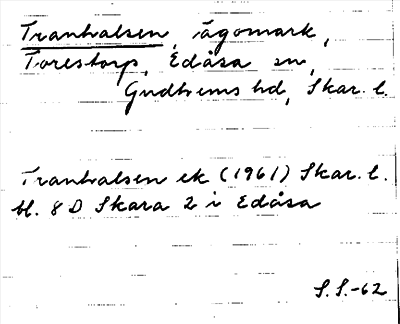 Tranhalsen, ägomark,
Torestorp, Edåsa sn,
Gudhems hd, Skar. l.
Tranhalsen ek (1961) Skar. l.
bl. 8 D Skara 2 i Edåsa
S.S.-62